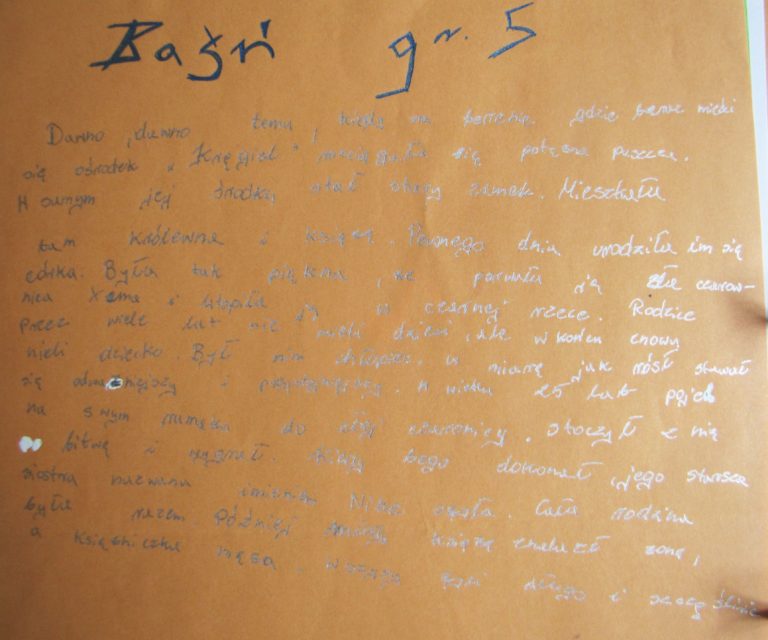 Baśń gr. 5
Dawno, dawno temu, kiedy na terenie gdzie teraz mieści
się ośrodek "Kręgiel" rozciągała się potężna puszcza.
W samym jej środku, stał stary zamek. Mieszkała
tam królewna i książe. Pewnego dnia urodziła im się
córka. Była tak piękna, że porwała ją zła czarow-
nica Xema i utopiła ją w czarnej rzece. Rodzice
przez wiele lat nie mieli dzieci, ale w końcu znowu
mieli dziecko. Był nim chłopiec. W miarę jak rósł stawał
się odważniejszy i potężniejszy. W wieku 25 lat pojechał
na swym rumaku do niej czarownicy. Stoczył z nią
bitwę i wygrał. Kiedy tego dokonał, jego starsza
siostra nazwana imieniem Nikoi ożyła. Cała rodzina
była razem Później książe znalazł żonę,
a księżniczka męża. Wszyscy żyli długo i szczęśliwie